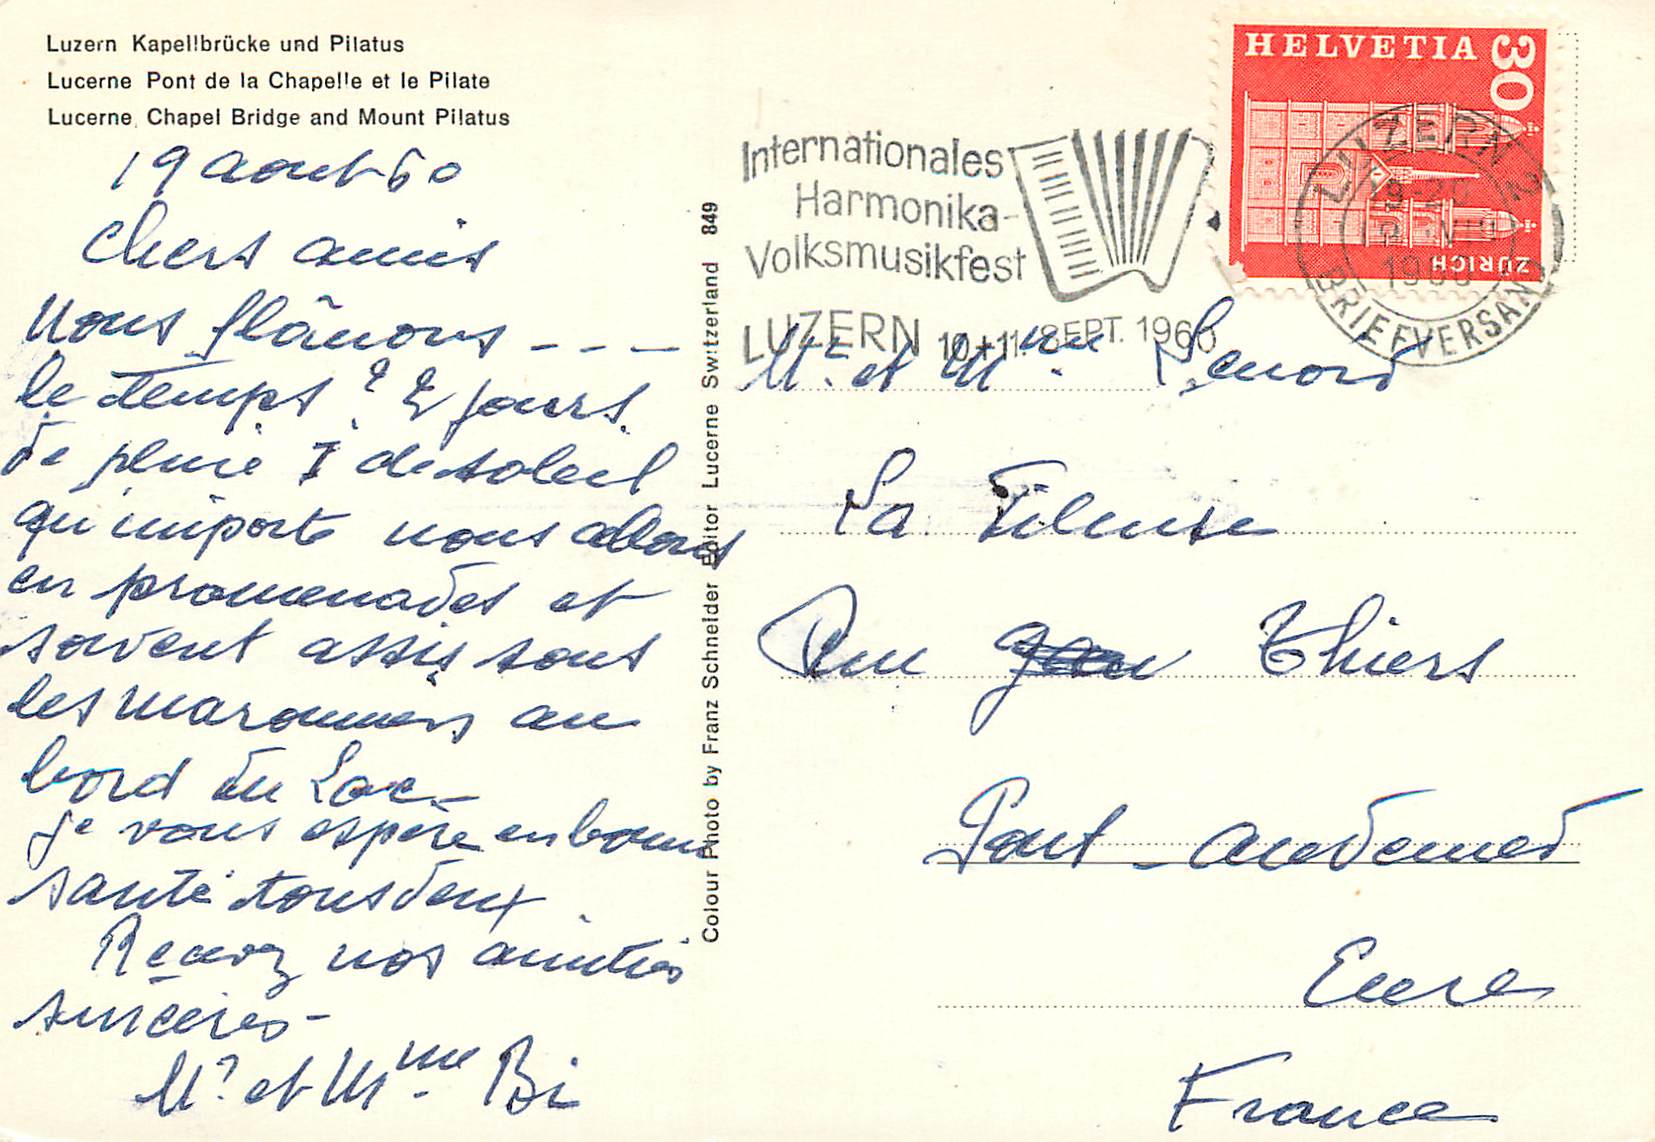 Luzern Kapellbrücke und Pilatus
Lucerne Pont de la Chapelle et le Pilate
Lucerne, Chapel Bridge and Mount Pilatus
19 aout 60
Chers amis
Nous flânons _ _ _
le temps? 2 jours
de pluie 1 de soleil
qu'importe nous allons
en promenades et
souvent assis sous
les maronniers au
bord du Lac_
je vous espère en bonne
santé tous deux
Recevez nos amitiés
sincères_
Mr et Mme Bi
Colour Photo by Franz Schneider Editor Lucerne Switzerland 849
Internationales
Harmonika-
Volksmusikfest
LUZERN 10.+11. SEPT. 1960
HELVETIA 30
ZÜRICH
LUZERN 2
19-20
1960
BRIEFVERSAND
Mr et Mme Lenord
La Fileuse
Rue Thiers
Pont-Audemer
Eure
France